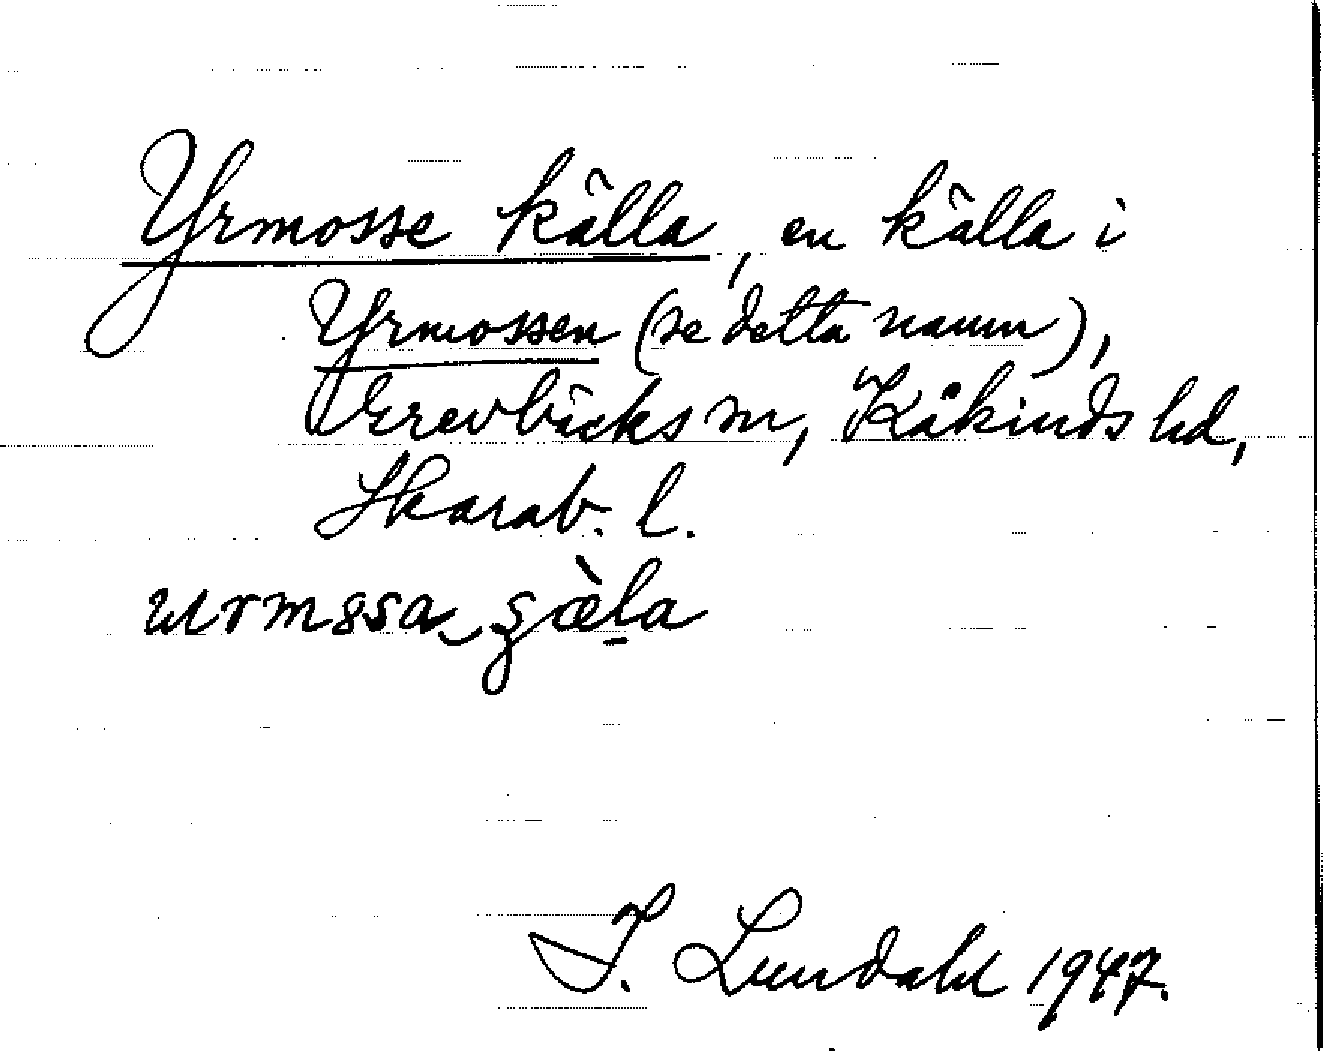 Yrmosse källa, en källa i
Yrmossen (se detta namn),
Grevbäcks sn, Kåkinds hd,
Skarab. l.
I. Lundahl 1947.